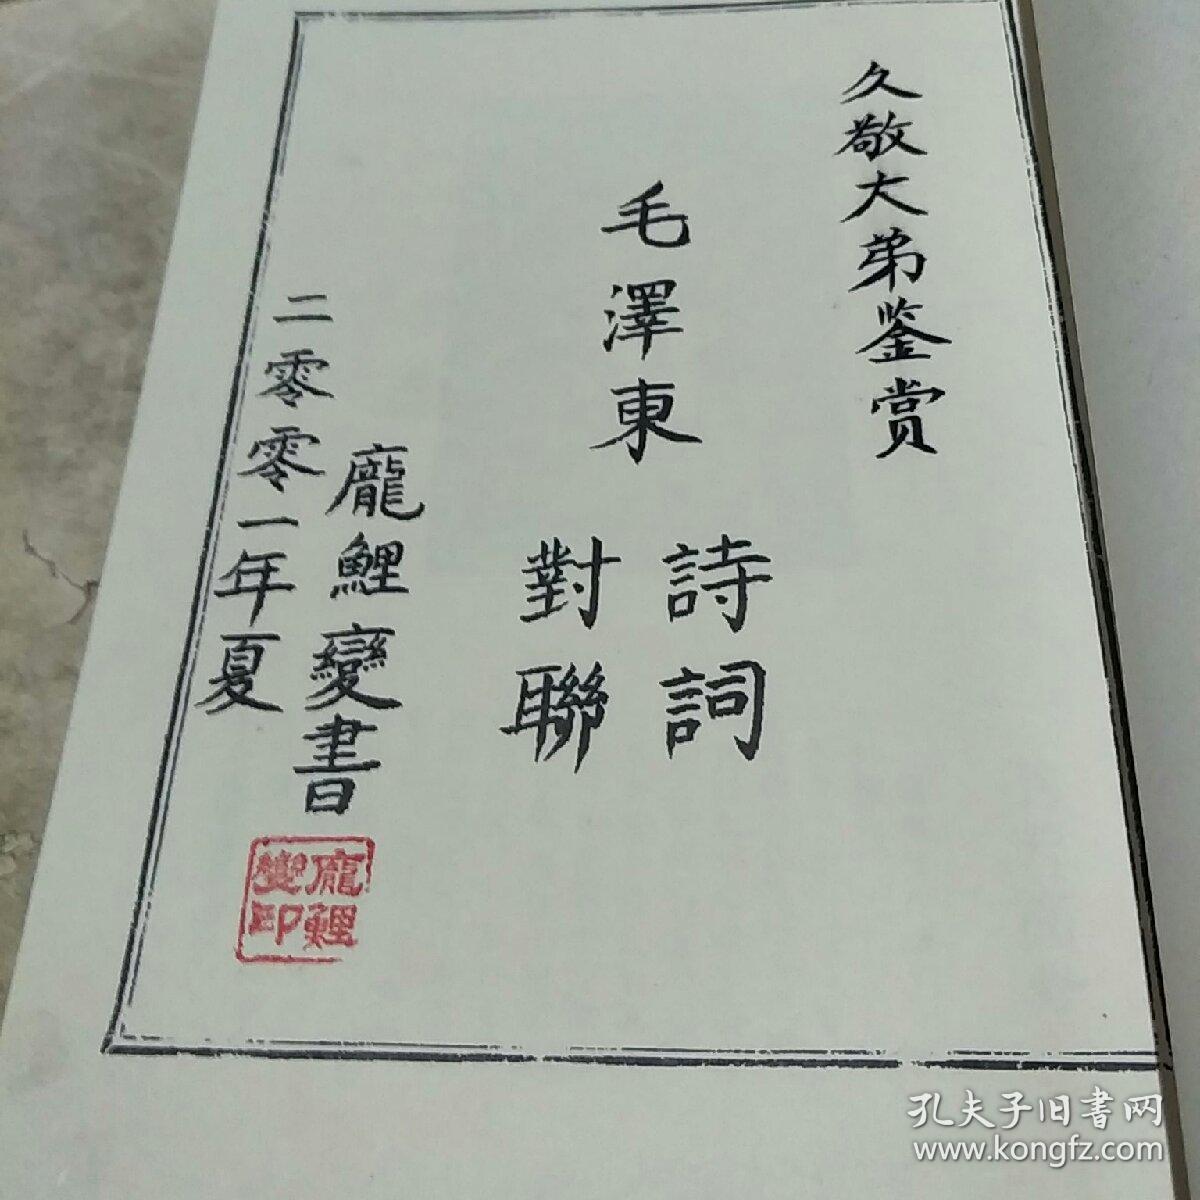 久敬大弟鉴赏
毛澤東
詩詞
對聯
龐鯉變書
二零零一年夏
龐鯉
變印
孔夫子旧书网
www.kongfz.com